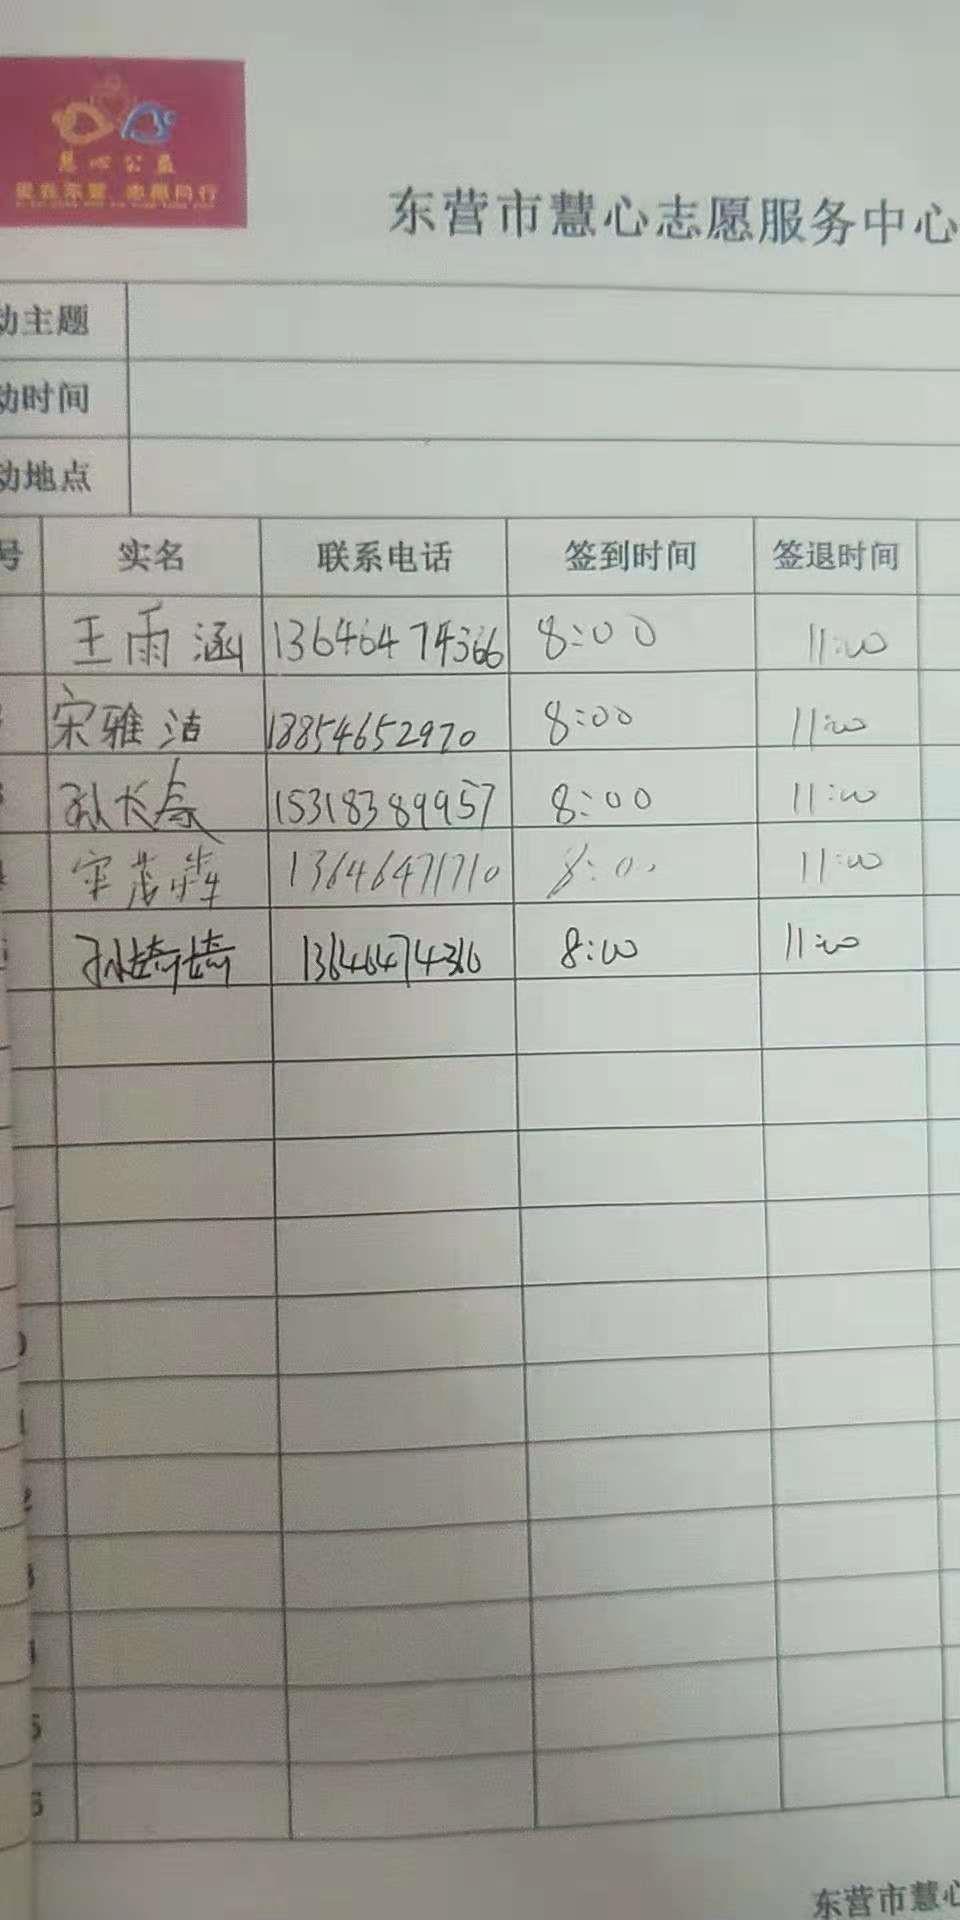 慧心公益
爱在东营 志愿同行
东营市慧心志愿服务中心
动主题
动时间
动地点
号 实名 联系电话 签到时间 签退时间
王雨涵 13646474366 8:00 11:00
宋雅洁 18854652970 8:00 11:00
孙长 15318389957 8:00 11:00
13646471710 8:00 11:00
孙婧婧 13646474316 8:00 11:00
2
3
4
5
6
东营市慧心